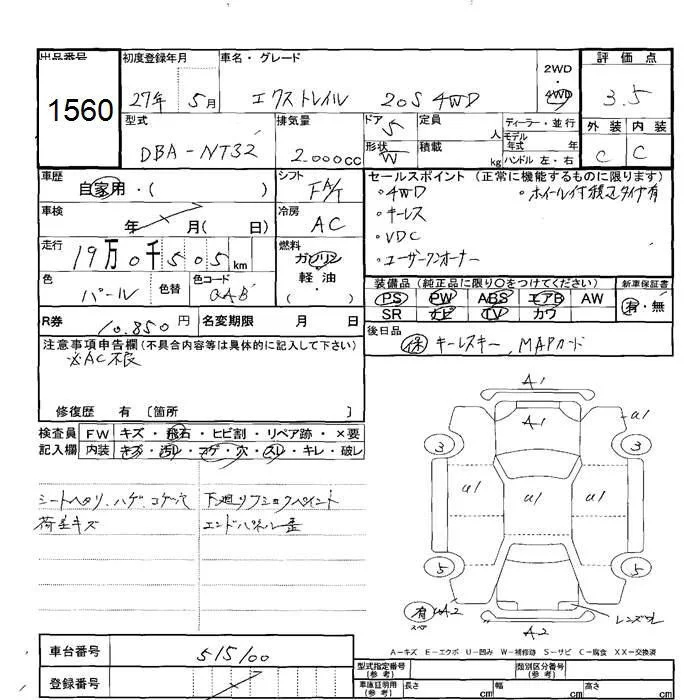 出品番号 1560
初度登録年月 27年 5月
車名・グレード エクストレイル 20S 4WD
2WD ・ 4WD
評価点 3.5
型式 DBA-NT32
排気量 2.000cc
ドア 5
形状 W
定員 人
積載 kg
ディーラー・並行
モデル年式 年
ハンドル 左・右
外装 C
内装 C
車歴 自家用・( )
シフト FA/T
セールスポイント (正常に機能するものに限ります)
・4WD ・ホイール付
・キーレス
・VDC
・ユーザーワンオーナー
車検 年 月( 日)
冷房 AC
走行 19万0千505km
燃料 ガソリン ・ 軽油 ( )
色 パール
色替
色コード QAB
装備品 (純正品に限り○をつけてください)
PS PW ABS エアB AW
SR ナビ TV カワ
新車保証書 有・無
R券 10.850円
名変期限 月 日
後日品 保 キーレスキー, MAPカード
注意事項申告欄(不具合内容等は具体的に記入して下さい)
※AC不良
修復歴 有 〔箇所 〕
検査員記入欄
FW キズ ・ 飛石 ・ ヒビ割 ・ リペア跡 ・ ×要
内装 キズ ・ 汚レ ・ コゲ ・ 穴 ・ スレ ・ キレ ・ 破レ
シートヘタリ、ハゲ、コゲ穴
下廻リフショックペイント
荷室キズ
エンドパネル歪
A1
A1
U1
3 3
U1 U1 U1
5 5
有 UA2
スペア
A2
レンズワレ
A-キズ E-エクボ U-凹み W-補修跡 S-サビ C-腐食 XX-交換済
車台番号 515100
登録番号
型式指定番号 (参考)
類別区分番号 (参考)
車庫証明用 (参考) 長さ cm 幅 cm 高さ cm